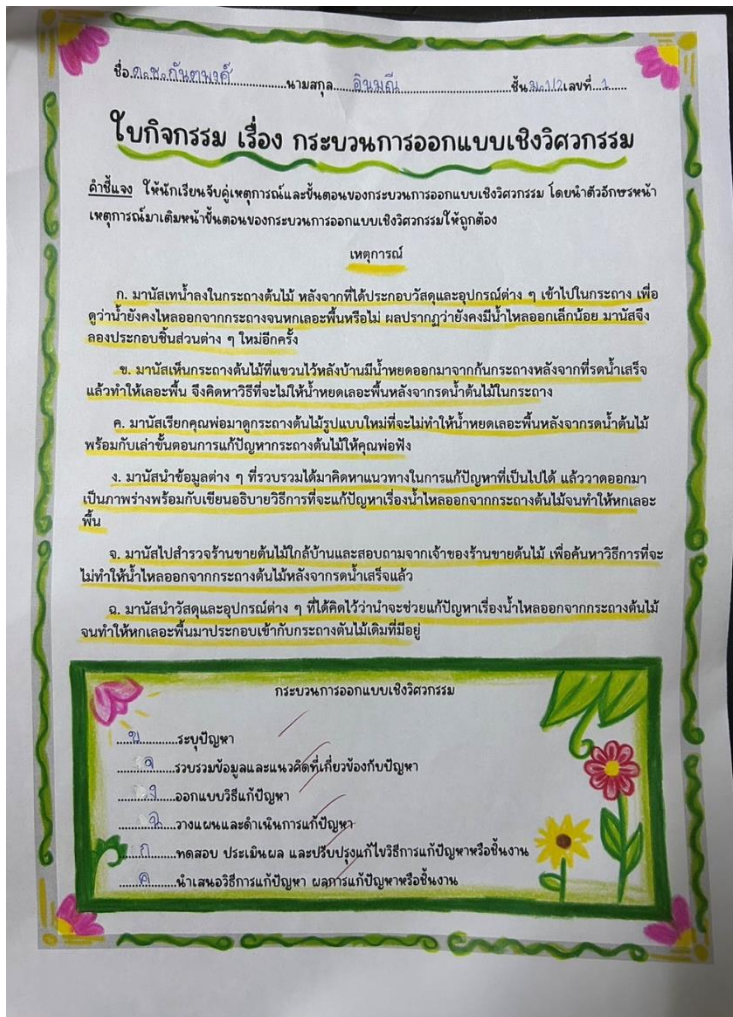 ชื่อ.ด.ช.กันตพงศ์.................นามสกุล.....อินมณี.................................ชั้น.ม.1/2เลขที่...1......
ใบกิจกรรม เรื่อง กระบวนการออกแบบเชิงวิศวกรรม
คำชี้แจง ให้นักเรียนจับคู่เหตุการณ์และขั้นตอนของกระบวนการออกแบบเชิงวิศวกรรม โดยนำตัวอักษรหน้า
เหตุการณ์มาเติมหน้าขั้นตอนของกระบวนการออกแบบเชิงวิศวกรรมให้ถูกต้อง
เหตุการณ์
ก. มานัสเทน้ำลงในกระถางต้นไม้ หลังจากที่ได้ประกอบวัสดุและอุปกรณ์ต่าง ๆ เข้าไปในกระถาง เพื่อ
ดูว่าน้ำยังคงไหลออกจากกระถางจนหกเลอะพื้นหรือไม่ ผลปรากฏว่ายังคงมีน้ำไหลออกเล็กน้อย มานัสจึง
ลองประกอบชิ้นส่วนต่าง ๆ ใหม่อีกครั้ง
ข. มานัสเห็นกระถางต้นไม้ที่แขวนไว้หลังบ้านมีน้ำหยดออกมาจากก้นกระถางหลังจากที่รดน้ำเสร็จ
แล้วทำให้เลอะพื้น จึงคิดหาวิธีที่จะไม่ให้น้ำหยดเลอะพื้นหลังจากรดน้ำต้นไม้ในกระถาง
ค. มานัสเรียกคุณพ่อมาดูกระถางต้นไม้รูปแบบใหม่ที่จะไม่ทำให้น้ำหยดเลอะพื้นหลังจากรดน้ำต้นไม้
พร้อมกับเล่าขั้นตอนการแก้ปัญหากระถางต้นไม้ให้คุณพ่อฟัง
ง. มานัสนำข้อมูลต่าง ๆ ที่รวบรวมได้มาคิดหาแนวทางในการแก้ปัญหาที่เป็นไปได้ แล้ววาดออกมา
เป็นภาพร่างพร้อมกับเขียนอธิบายวิธีการที่จะแก้ปัญหาเรื่องน้ำไหลออกจากกระถางต้นไม้จนทำให้หกเลอะ
พื้น
จ. มานัสไปสำรวจร้านขายต้นไม้ใกล้บ้านและสอบถามจากเจ้าของร้านขายต้นไม้ เพื่อค้นหาวิธีการที่จะ
ไม่ทำให้น้ำไหลออกจากกระถางต้นไม้หลังจากรดน้ำเสร็จแล้ว
ฉ. มานัสนำวัสดุและอุปกรณ์ต่าง ๆ ที่ได้คิดไว้ว่าน่าจะช่วยแก้ปัญหาเรื่องน้ำไหลออกจากกระถางต้นไม้
จนทำให้หกเลอะพื้นมาประกอบเข้ากับกระถางต้นไม้เดิมที่มีอยู่
กระบวนการออกแบบเชิงวิศวกรรม
...ข..........ระบุปัญหา
......จ.......รวบรวมข้อมูลและแนวคิดที่เกี่ยวข้องกับปัญหา
......ง.......ออกแบบวิธีแก้ปัญหา
......ฉ.......วางแผนและดำเนินการแก้ปัญหา
.....ก........ทดสอบ ประเมินผล และปรับปรุงแก้ไขวิธีการแก้ปัญหาหรือชิ้นงาน
.....ค........นำเสนอวิธีการแก้ปัญหา ผลการแก้ปัญหาหรือชิ้นงาน